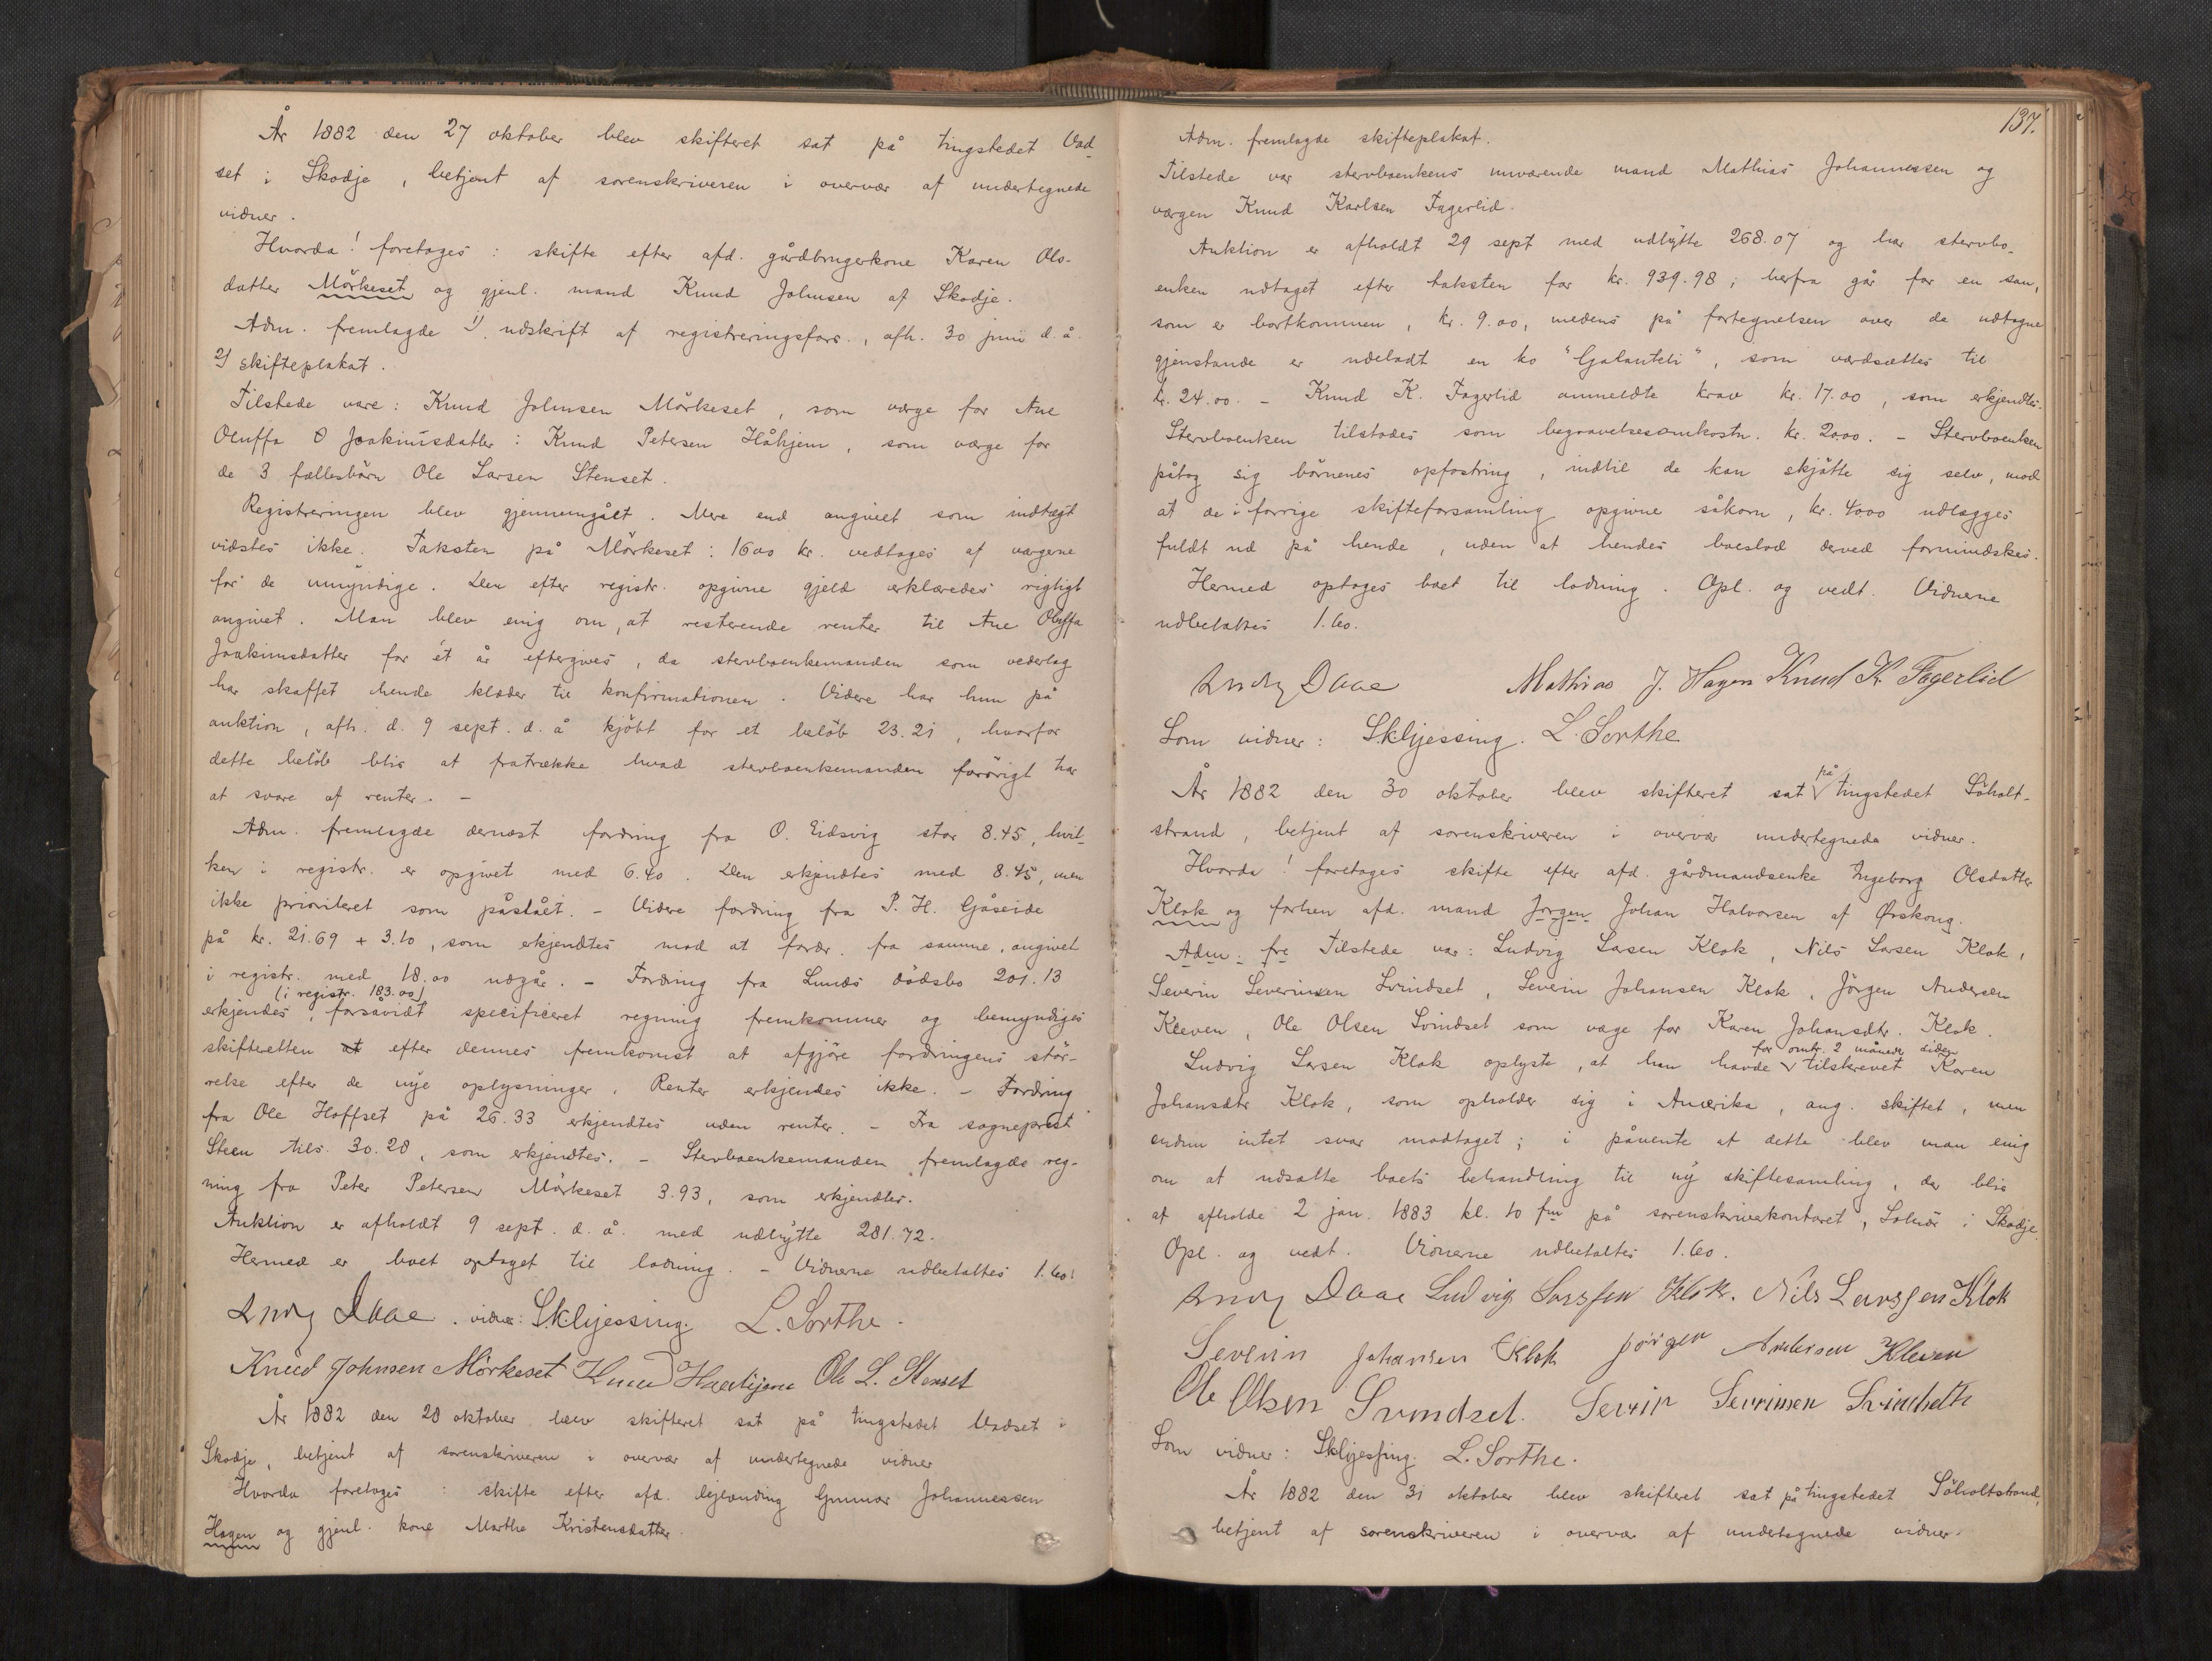 År 1882 den 27 oktober blev skifteret sat på tingstedet Vad-
set i Skodje, betjent af sorenskriveren i overvær af undertegnede
vidner.
Hvorda! foretages: skifte efter afd. gårdbrugerkone Karen Ols-
datter Mörkeset og gjenl. mand Knud Johnsen af Skodje.
Adm. fremlagde 1) udskrift af registreringsforr., afh. 30 juni d. å.
2) skifteplakat.
Tilstede vare: Knud Johnsen Mörkeset, som værge for Ane
Oluffa Joakimsdatter: Knud Petersen Håhjem, som værge for
de 3 fællesbörn Ole Larsen Stenset.
Registreringen blev gjennemgået. Mere end angivet som indtægt
vidstes ikke. Taksten på Mörkeset: 1600 kr. vedtages af værgerne
for de umyndige. Den efter registr. opgivne gjeld erklæredes rigtigt
angivet. Man blev enig om, at resterende renter til Ane Oluffa
Joakimsdatter for ét år eftergives, da stervboenkemanden som vederlag
har skaffet hende klæder til konfirmationen. Videre har hun på
auktion, afh. d. 9 sept. d. å kjöbt for et belöb 23.21, hvorfor
dette belöb blir at fratrække hvad stervboenkemanden forövrigt har
at svare af renter. -
Adm. fremlagde dernæst fordring fra O. Eidsvig stor 8.45, hvil-
ken i registr. er opgivet med 6.40. Den erkjendtes med 8.45, men
ikke prioriteret som påstået. - Videre fordring fra P. H. Gåseide
på kr. 21.69 + 3.10, som erkjendtes mod at fordr. fra samme, angivet
i registr. med 18.00 udgår. - Fordring fra Lunds dödsbo 201.13
(i registr. 183.00)
erkjendes, forsåvidt specificeret regning fremkommer og bemyndiges
skifteretten at efter dennes fremkomst at afgjöre fordringens stör-
relse efter de nye oplysninger. Renter erkjendes ikke. - Fordring
fra Ole Hoffset på 26.33 erkjendtes uden renter. - Fra sogneprest
Steen tils. 30.20, som erkjendtes. - Stervboenkemanden fremlagde reg-
ning fra Peter Petersen Mörkeset 3.93, som erkjendtes.
Auktion er afholdt 9 sept. d. å. med udbytte 281.72.
Hermed er boet optaget til lodning. - Vidnerne udbetaltes 1.60.
Andr Daae. vidner: S Klyjessing. L. Sorthe.
Knud Johnsen Mörkeset Knud Haahjem Ole L. Stenset
År 1882 den 28 oktober blev skifteret sat på tingstedet Vadset i
Skodje, betjent af sorenskriveren i overvær af undertegnede vidner
Hvorda foretages: skifte efter afd. lejlænding Gunnar Johannessen
Hagen og gjenl. kone Marthe Kristensdatter.
137.
Adm. fremlagde skifteplakat.
Tilstede var stervboenkens nuværende mand Mathias Johannessen og
værgen Knud Karlsen Fagerlid.
Auktion er afholdt 29 sept med udbytte 268.07 og har stervbo-
enken udtaget efter taksten for kr. 939.98; herfra går for en sau,
som er bortkommen, kr. 9.00, medens på fortegnelsen over de udtagne
gjenstande er udeladt en ko "Galanteli", som værdsættes til
kr. 24.00. - Knud K. Fagerlid anmeldte krav kr. 17.00, som erkjendtes.
Stervboenken tilstodes som begravelsesomkostn. kr. 20.00. - Stervboenken
påtog sig börnenes opfostring, indtil de kan skjötte sig selv, mod
at de i forrige skifteforsamling opgivne såkorn, kr. 40.00 udlægges
fuldt ud på hende, uden at hendes boeslod derved formindskes.
Hermed optoges boet til lodning. Opl. og vedt. Vidnerne
udbetaltes 1.60.
Andr Daae Mathias J. Hagen Knud K. Fagerlid
Som vidner: S Klyjessing. L. Sorthe
År 1882 den 30 oktober blev skifteret sat på tingstedet Söholt-
strand, betjent af sorenskriveren i overvær undertegnede vidner.
Hvorda! foretages skifte efter afd. gårdmandsenke Ingeborg Olsdatter
Klok og forhen afd. mand Jørgen Johan Halvorsen af Ørskoug.
Adm. fre Tilstede var: Ludvig Larsen Klok, Nils Larsen Klok,
Severin Severinsen Svindset, Severin Johansen Klok, Jörgen Andersen
Kleven, Ole Olsen Svindset som værge for Karen Johansdtr. Klok.
Ludvig Larsen Klok oplyste, at han havde for omtr. 2 måneder siden tilskrevet Karen
Johansdtr Klok, som opholder sig i Amerika, ang. skiftet, men
endnu intet svar modtaget; i påvente af dette blev man enig
om at udsætte boets behandling til ny skiftesamling, der blir
at afholde 2 jan. 1883 kl. 10 fm på sorenskriverkontoret, Solnör i Skodje.
Opl. og vedt. Vidnerne udbetaltes 1.60.
Andr Daae Ludvig Larssen Klok. Nils Larssen Klok
Severin Johansen Klok Jörgen Andersen Kleven
Ole Olsen Svindset. Severin Severinsen
Som vidner: S Klyjessing. L. Sorthe.
År 1882 den 31 oktober blev skifteret sat på tingstedet Söholtstrand,
betjent af sorenskriveren i overvær af undertegnede vidner.